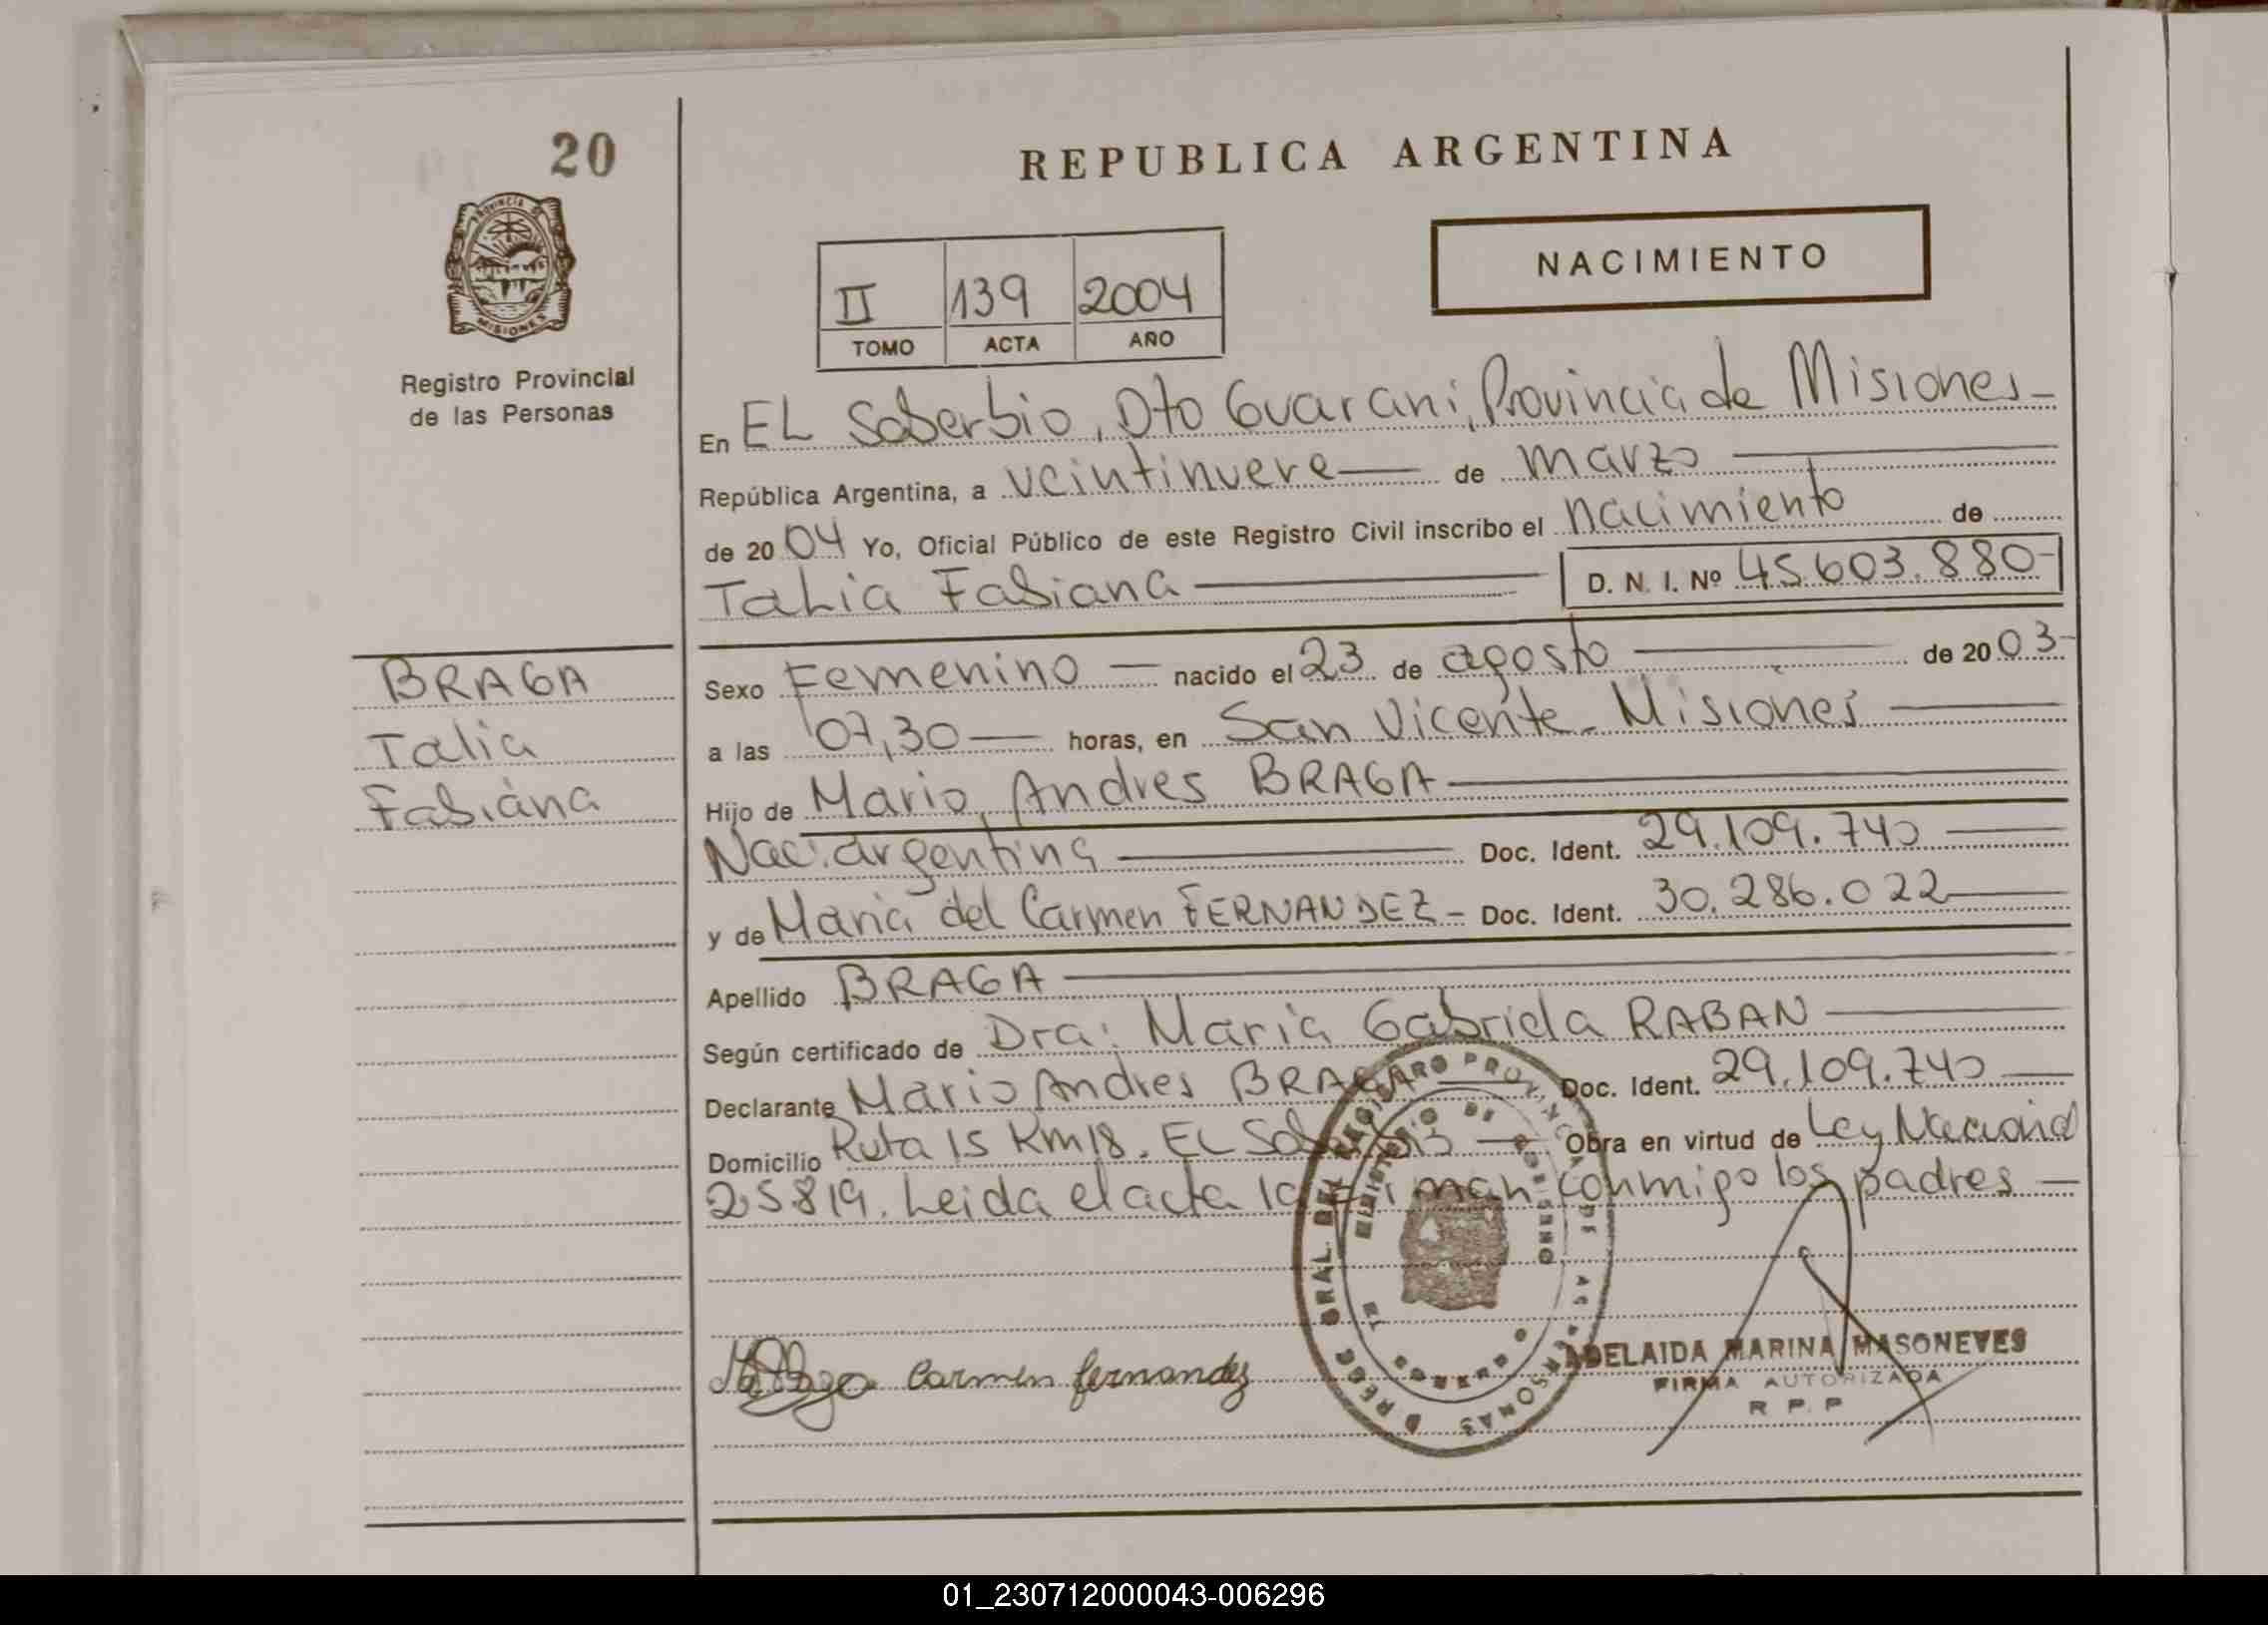 20
REPUBLICA ARGENTINA
NACIMIENTO
II 139 2004
TOMO ACTA AÑO
PROVINCIA DE
MISIONES
Registro Provincial
de las Personas
En EL Soberbio, Dto Guarani, Provincia de Misiones-
República Argentina, a veintinueve de marzo
de 2004 Yo, Oficial Público de este Registro Civil inscribo el nacimiento de
Talia Fabiana D. N. I. Nº 45.603.880-
BRAGA
Talia
Fabiana
Sexo Femenino - nacido el 23 de agosto de 2003-
a las 07,30 horas, en San Vicente - Misiones
Hijo de Mario Andres BRAGA
Nac. argentina Doc. Ident. 29.109.740
y de Maria del Carmen FERNANDEZ - Doc. Ident. 30.286.022
Apellido BRAGA
Según certificado de Dra: Maria Gabriela RABAN
Declarante Mario Andres BRAGA Doc. Ident. 29.109.740
Domicilio Ruta 15 Km 18. EL Soberbio - Obra en virtud de Ley Nacional
25819. Leida el acta la firman conmigo los padres -
Carmen fernandez
ADELAIDA MARINA MASONEVES
FIRMA AUTORIZADA
R P P
01_230712000043-006296